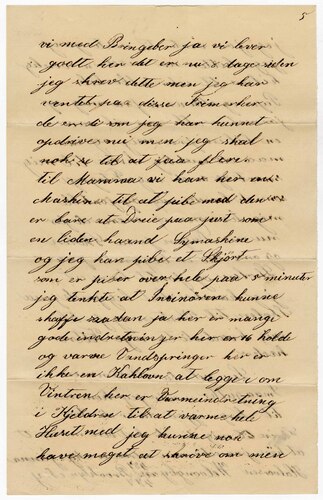 5
vi med Bringeber ja vi lever
godt her det er nu 8 dage siden
jeg skrev dette men jeg har
ventet paa disse Frimerker
de er ti som jeg har kunnet
opdrive nu men jeg skal
nok se til at faa flere
til Mamma vi har her en
Maskin til at pibe med den
er bare at Dreie paa just som
en liden haand Symaskine
og jeg kan pibe et Skjört
som er piber over hele paa 5 minuter
jeg tenkte at Insinören kunne
skaffe saadan ja her er mange
gode indretninger her er 16 kolde
og varme Vandspringer her er
ikke en Kaklovn at legge i om
Vintren her er Varmeindretning
i Kjeldren til at varme hele
Huset med jeg kunne nok
have meget at skrive om men